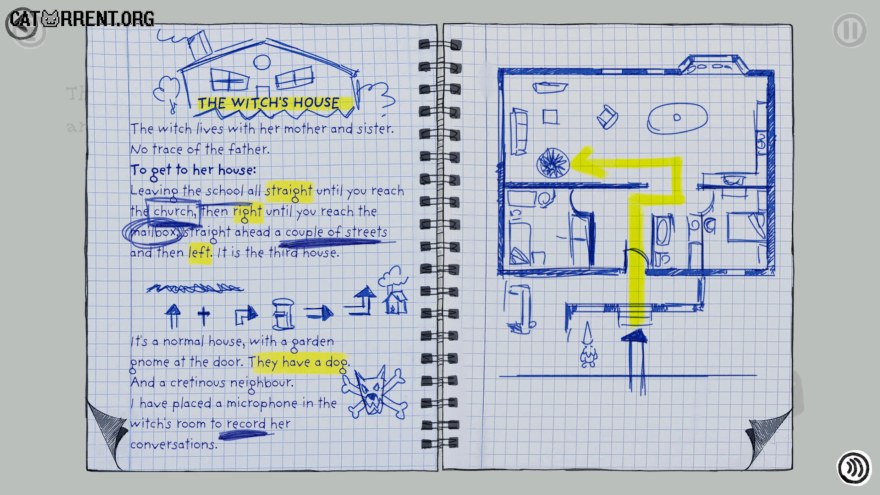 CATORRENT.ORG
THE WITCH'S HOUSE
The witch lives with her mother and sister.
No trace of the father.
To get to her house:
Leaving the school all straight until you reach
the church, then right until you reach the
mailbox, straight ahead a couple of streets
and then left. It is the third house.
It's a normal house, with a garden
gnome at the door. They have a dog.
And a cretinous neighbour.
I have placed a microphone in the
witch's room to record her
conversations.